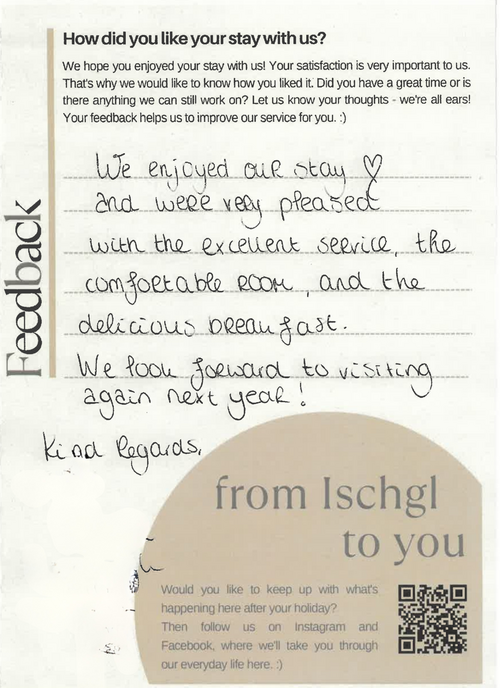 How did you like your stay with us?
We hope you enjoyed your stay with us! Your satisfaction is very important to us.
That's why we would like to know how you liked it. Did you have a great time or is
there anything we can still work on? Let us know your thoughts - we're all ears!
Your feedback helps us to improve our service for you. :)
Feedback
We enjoyed our stay ♡
and were very pleased
with the excellent service, the
comfortable room, and the
delicious breakfast.
We look forward to visiting
again next year!
Kind Regards,
from Ischgl
to you
Would you like to keep up with what's
happening here after your holiday?
Then follow us on Instagram and
Facebook, where we'll take you through
our everyday life here. :)